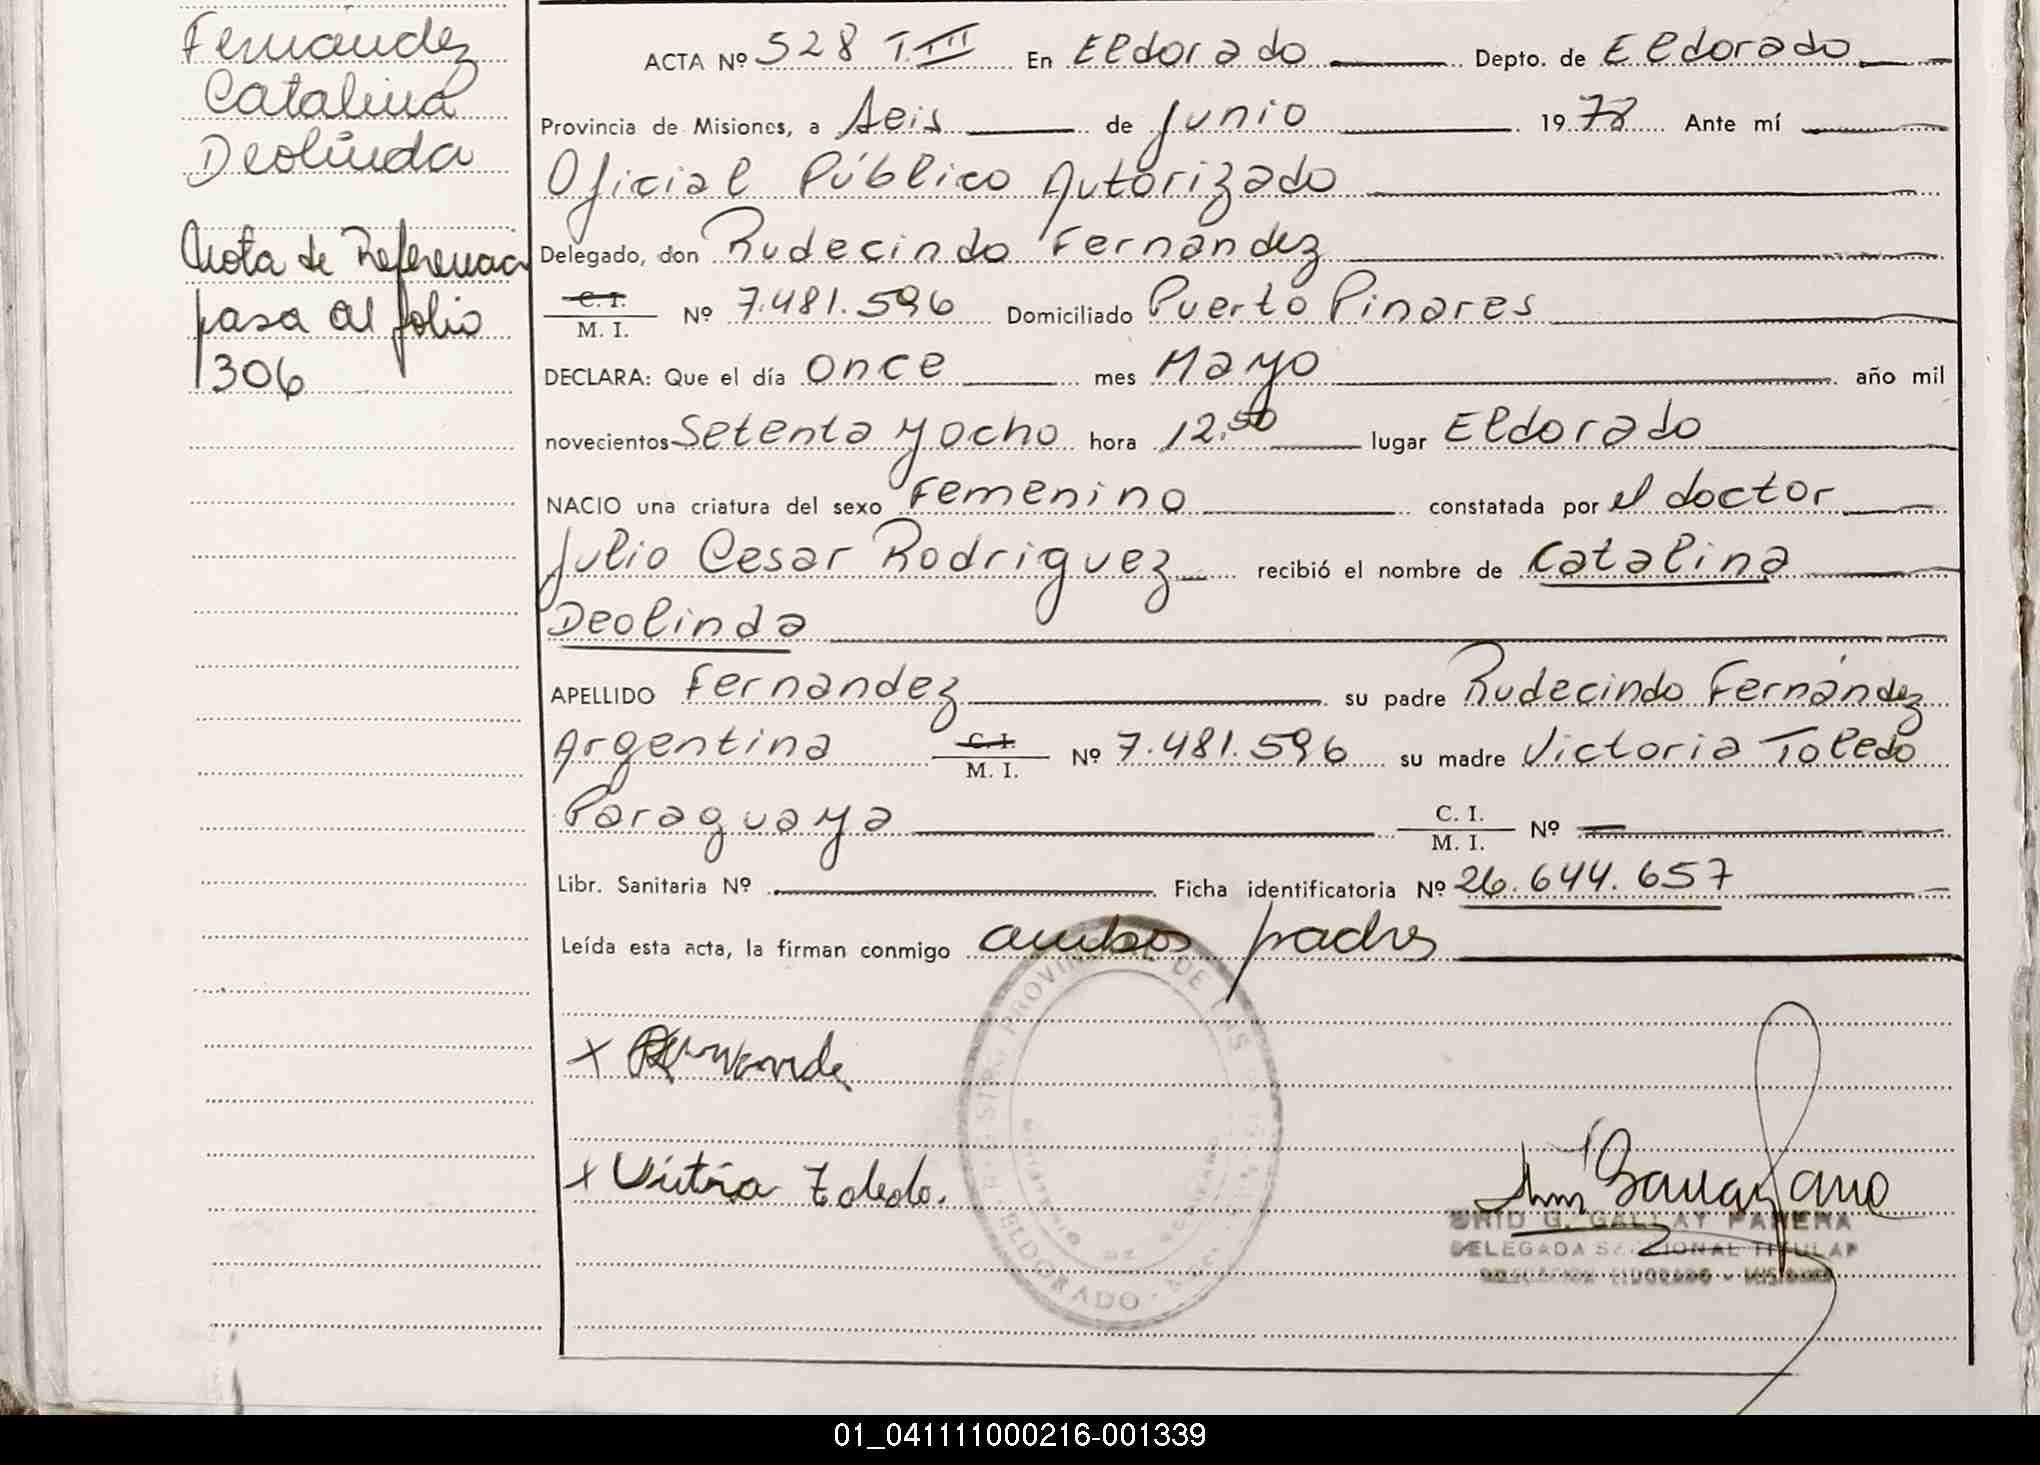 Fernandez
Catalina
Deolinda
Nota de Referencia
pasa al folio
306
ACTA Nº 528 T.III En Eldorado Depto. de Eldorado
Provincia de Misiones, a Seis de Junio 1978 Ante mí
Oficial Público Autorizado
Delegado, don Rudecindo Fernández
C. I. / M. I. Nº 7.481.596 Domiciliado Puerto Pinares
DECLARA: Que el día once mes Mayo año mil
novecientos Setenta y ocho hora 12.50 lugar Eldorado
NACIO una criatura del sexo Femenino constatada por el doctor
Julio Cesar Rodriguez recibió el nombre de Catalina
Deolinda
APELLIDO Fernandez su padre Rudecindo Fernández
Argentina C. I. / M. I. Nº 7.481.596 su madre Victoria Toledo
Paraguaya C. I. / M. I. Nº
Libr. Sanitaria Nº Ficha identificatoria Nº 26.644.657
Leída esta acta, la firman conmigo ambos padres
PROVINCIAL DE LAS
ELDORADO
x
x Toledo.
G. GALLAY PARERA
DELEGADA SECCIONAL TITULAR
ELDORADO - MISIONES
01_041111000216-001339